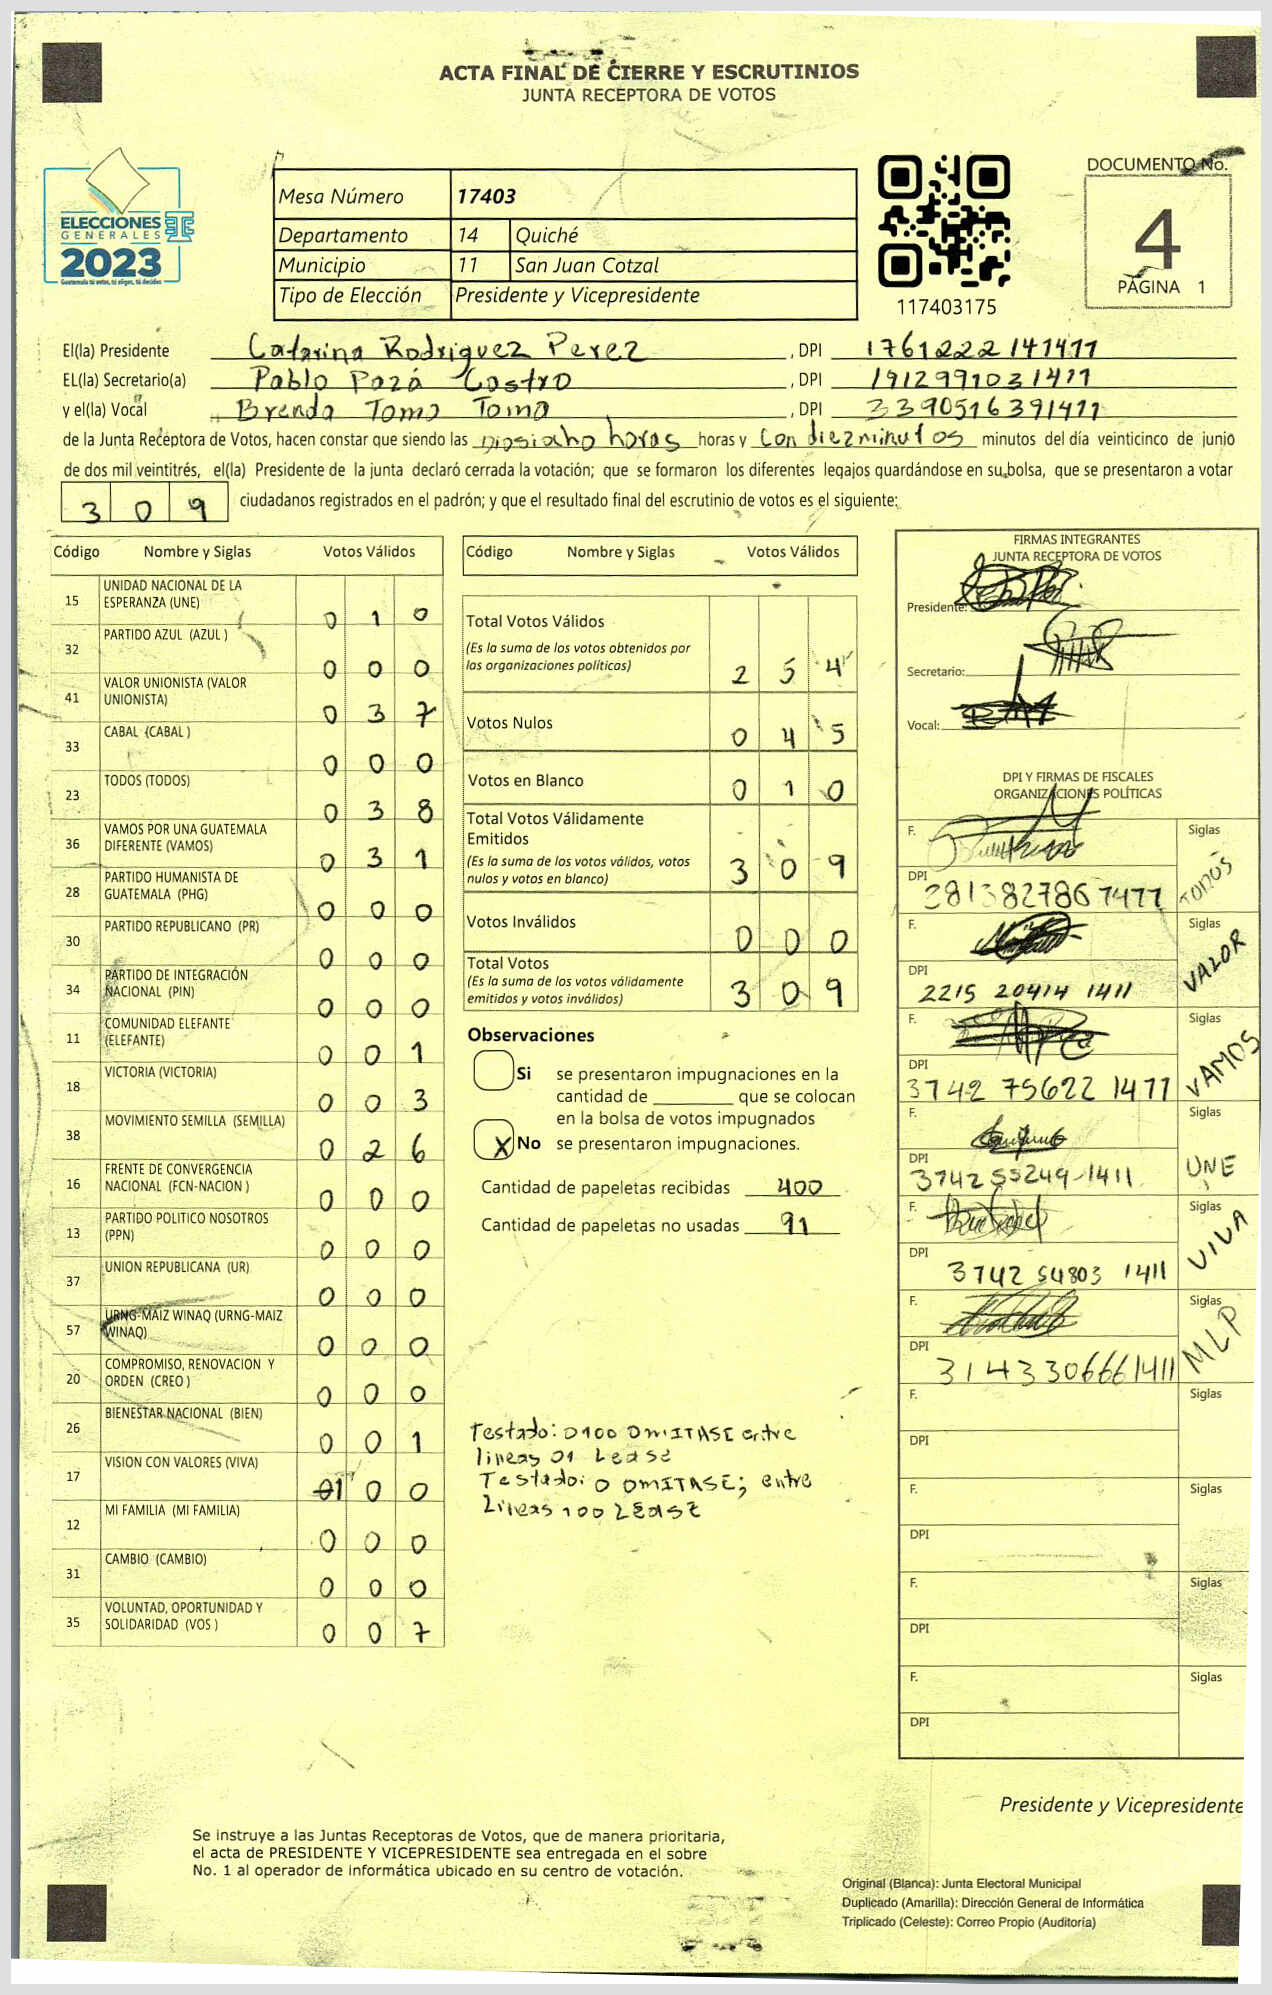 ACTA FINAL DE CIERRE Y ESCRUTINIOS
JUNTA RECEPTORA DE VOTOS
ELECCIONES
GENERALES
2023
Guatemala tú votas, tú eliges, tú decides
Mesa Número 17403
Departamento 14 Quiché
Municipio 11 San Juan Cotzal
Tipo de Elección Presidente y Vicepresidente
117403175
DOCUMENTO No.
4
PÁGINA 1
El(la) Presidente Catarina Rodriguez Perez , DPI 1761222141411
EL(la) Secretario(a) Pablo Pozá Castro , DPI 1912991031411
y el(la) Vocal Brenda Tomo Toma , DPI 3390516391411
de la Junta Receptora de Votos, hacen constar que siendo las Diosiaho horas horas y con diez minutos minutos del día veinticinco de junio
de dos mil veintitrés, el(la) Presidente de la junta declaró cerrada la votación; que se formaron los diferentes legajos guardándose en su bolsa, que se presentaron a votar
3 0 9 ciudadanos registrados en el padrón; y que el resultado final del escrutinio de votos es el siguiente:
Código Nombre y Siglas Votos Válidos
15 UNIDAD NACIONAL DE LA ESPERANZA (UNE) 0 1 0
32 PARTIDO AZUL (AZUL ) 0 0 0
41 VALOR UNIONISTA (VALOR UNIONISTA) 0 3 7
33 CABAL (CABAL ) 0 0 0
23 TODOS (TODOS) 0 3 8
36 VAMOS POR UNA GUATEMALA DIFERENTE (VAMOS) 0 3 1
28 PARTIDO HUMANISTA DE GUATEMALA (PHG) 0 0 0
30 PARTIDO REPUBLICANO (PR) 0 0 0
34 PARTIDO DE INTEGRACIÓN NACIONAL (PIN) 0 0 0
11 COMUNIDAD ELEFANTE (ELEFANTE) 0 0 1
18 VICTORIA (VICTORIA) 0 0 3
38 MOVIMIENTO SEMILLA (SEMILLA) 0 2 6
16 FRENTE DE CONVERGENCIA NACIONAL (FCN-NACION ) 0 0 0
13 PARTIDO POLITICO NOSOTROS (PPN) 0 0 0
37 UNION REPUBLICANA (UR) 0 0 0
57 URNG-MAIZ WINAQ (URNG-MAIZ WINAQ) 0 0 0
20 COMPROMISO, RENOVACION Y ORDEN (CREO ) 0 0 0
26 BIENESTAR NACIONAL (BIEN) 0 0 1
17 VISION CON VALORES (VIVA) 01 0 0
12 MI FAMILIA (MI FAMILIA) 0 0 0
31 CAMBIO (CAMBIO) 0 0 0
35 VOLUNTAD, OPORTUNIDAD Y SOLIDARIDAD (VOS ) 0 0 7
Código Nombre y Siglas Votos Válidos
Total Votos Válidos
(Es la suma de los votos obtenidos por
las organizaciones políticas) 2 5 4
Votos Nulos 0 4 5
Votos en Blanco 0 1 0
Total Votos Válidamente
Emitidos
(Es la suma de los votos válidos, votos
nulos y votos en blanco) 3 0 9
Votos Inválidos 0 0 0
Total Votos
(Es la suma de los votos válidamente
emitidos y votos inválidos) 3 0 9
Observaciones
Si se presentaron impugnaciones en la
cantidad de ________ que se colocan
en la bolsa de votos impugnados
X No se presentaron impugnaciones.
Cantidad de papeletas recibidas 400
Cantidad de papeletas no usadas 91
Testado: 0100 OMITASE entre
lineas 01 Lease
Testado: 0 OMITASE; entre
Lineas 100 LEASE
FIRMAS INTEGRANTES
JUNTA RECEPTORA DE VOTOS
Presidente:
Secretario:
Vocal:
DPI Y FIRMAS DE FISCALES
ORGANIZACIONES POLÍTICAS
F. Siglas TODOS
DPI 2813827867477
F. Siglas VALOR
DPI 2215 20414 1411
F. Siglas VAMOS
DPI 3742 75622 1411
F. Siglas UNE
DPI 3742 55249-1411
F. Siglas VIVA
DPI 3742 54803 1411
F. Siglas MLP
DPI 3143306661411
F. Siglas
DPI
F. Siglas
DPI
F. Siglas
DPI
F. Siglas
DPI
Presidente y Vicepresidente
Se instruye a las Juntas Receptoras de Votos, que de manera prioritaria,
el acta de PRESIDENTE Y VICEPRESIDENTE sea entregada en el sobre
No. 1 al operador de informática ubicado en su centro de votación.
Original (Blanca): Junta Electoral Municipal
Duplicado (Amarilla): Dirección General de Informática
Triplicado (Celeste): Correo Propio (Auditoría)